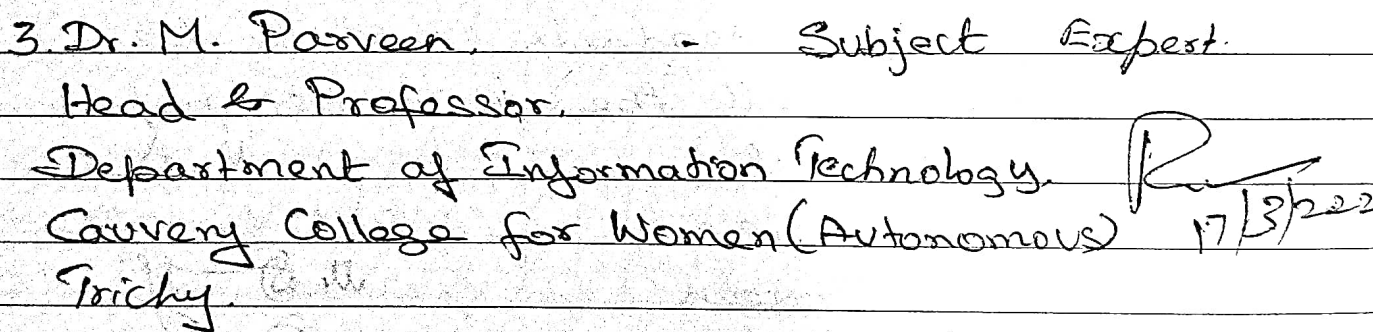 3. Dr. M. Parveen, - Subject Expert.
Head & Professor,
Department of Information Technology.
Cauvery College for Women (Autonomous)
Trichy.